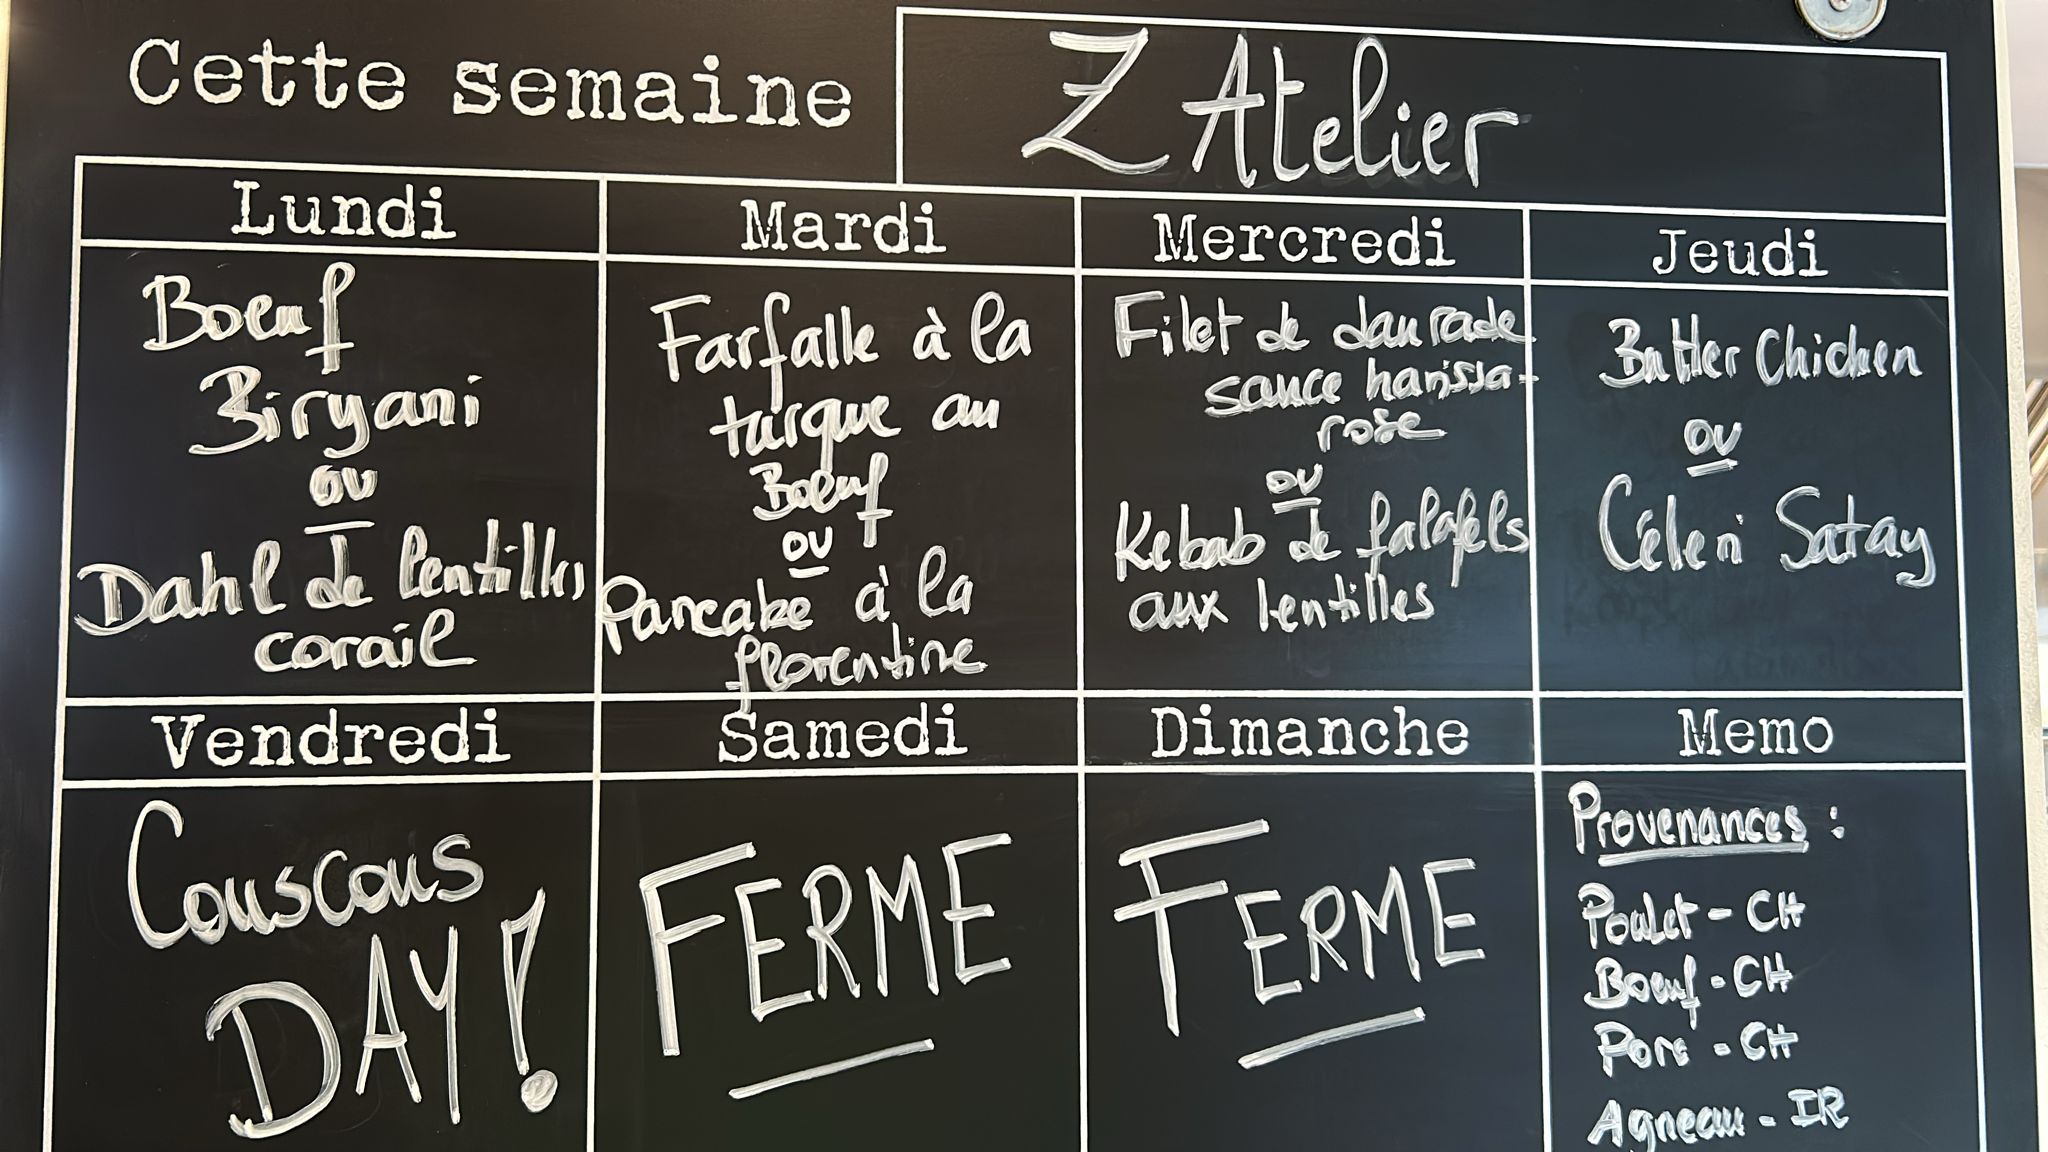 Cette semaine
Z Atelier
Lundi
Boeuf
Biryani
ou
Dahl de lentilles
corail
Mardi
Farfalle à la
turque au
Boeuf
ou
Pancake à la
florentine
Mercredi
Filet de daurade
sauce harissa-
rose
ou
Kebab de falafels
aux lentilles
Jeudi
Butter Chicken
ou
Céleri Satay
Vendredi
Couscous
DAY!
Samedi
FERME
Dimanche
FERME
Memo
Provenances :
Poulet - CH
Boeuf - CH
Porc - CH
Agneau - IR